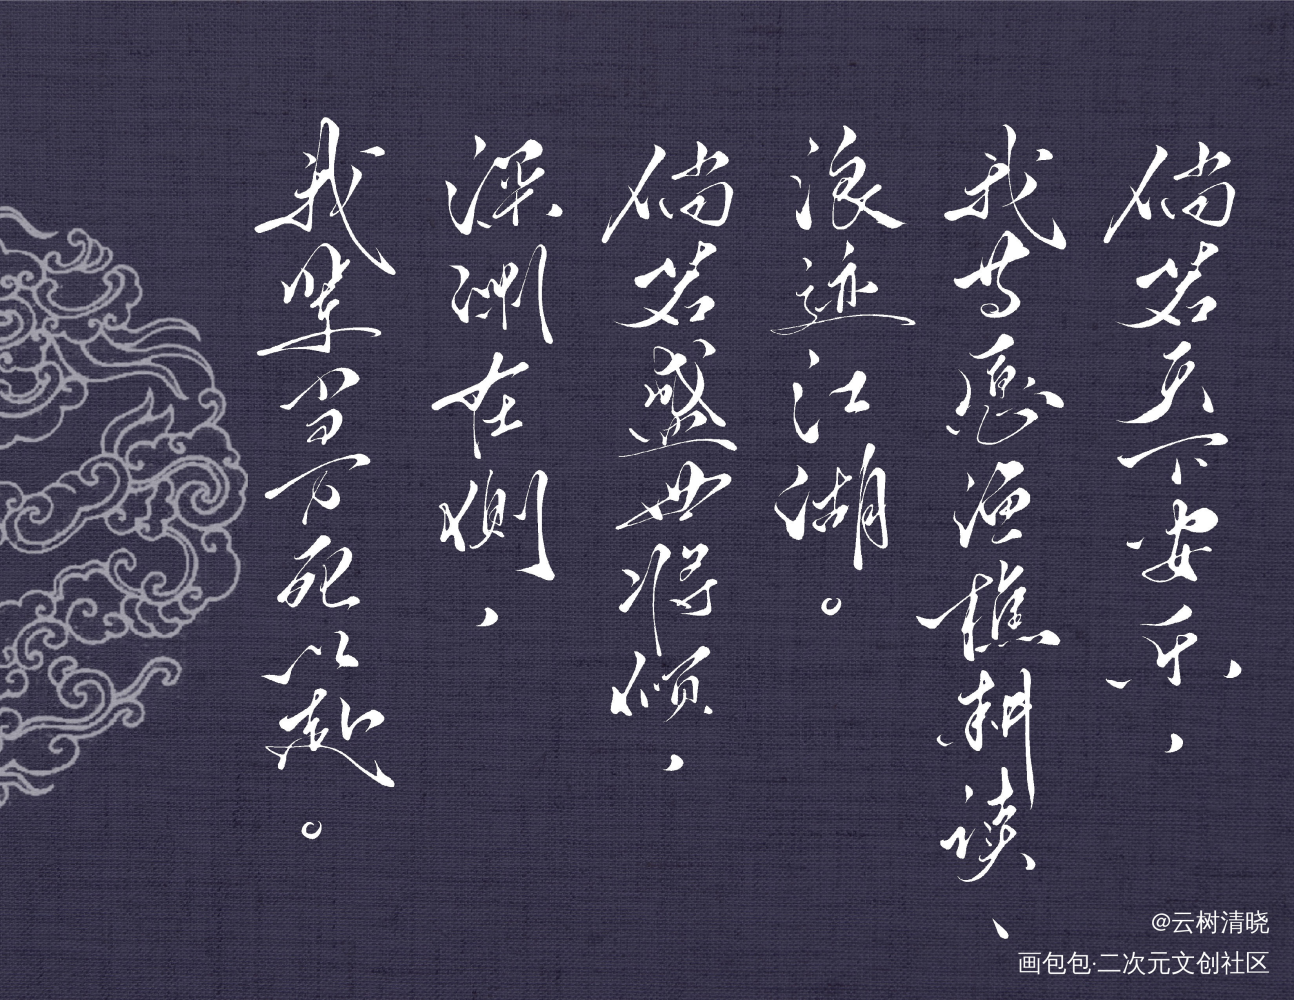 倘若天下安乐，
我等愿渔樵耕读、
浪迹江湖。
倘若盛世将倾，
深渊在侧，
我辈当万死以赴。
@云树清晓
画包包·二次元文创社区